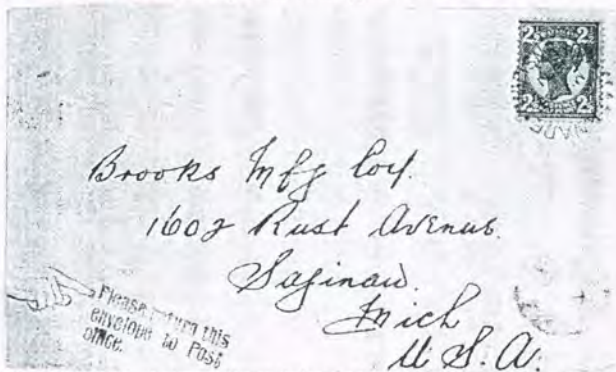 2½ 2½
Brooks Mfg Coy.
1602 Rust Avenue.
Saginaw.
Mich
U.S.A.
Please return this
envelope to Post
office.